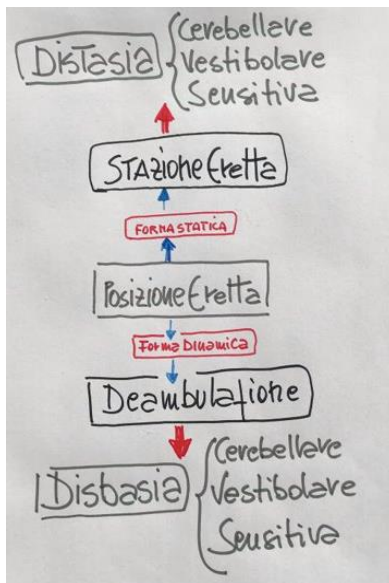 Distasia
Cerebellare
Vestibolare
Sensitiva
STAzione Eretta
FORMA STATICA
Posizione Eretta
Forma Dinamica
Deambulazione
Disbasia
Cerebellare
Vestibolare
Sensitiva